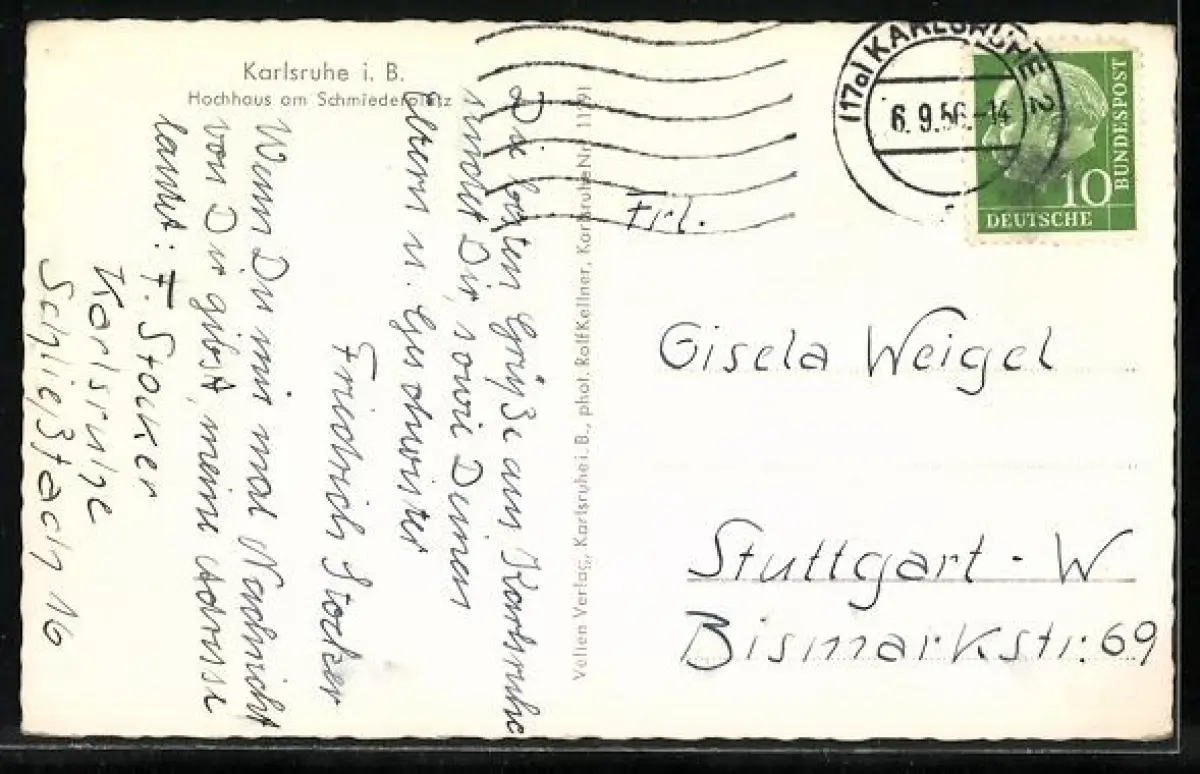 Karlsruhe i. B.
Hochhaus am Schmiederplatz
Die besten Grüße aus Karlsruhe
sendet Dir, sowie Deinen
Eltern u. Geschwister
Friedrich Stocker
Wenn Du mir mal Nachricht
von Dir gibst, meine Adresse
lautet: F. Stocker
Karlsruhe
Schließfach 16
Vollen Verlag, Karlsruhe i. B., phot. Rolf Kellner, Karlsruhe Nr.
(17a) KARLSRUHE 2
6.9.56.-14
10
DEUTSCHE
BUNDESPOST
Frl.
Gisela Weigel
Stuttgart - W
Bismarkstr. 69